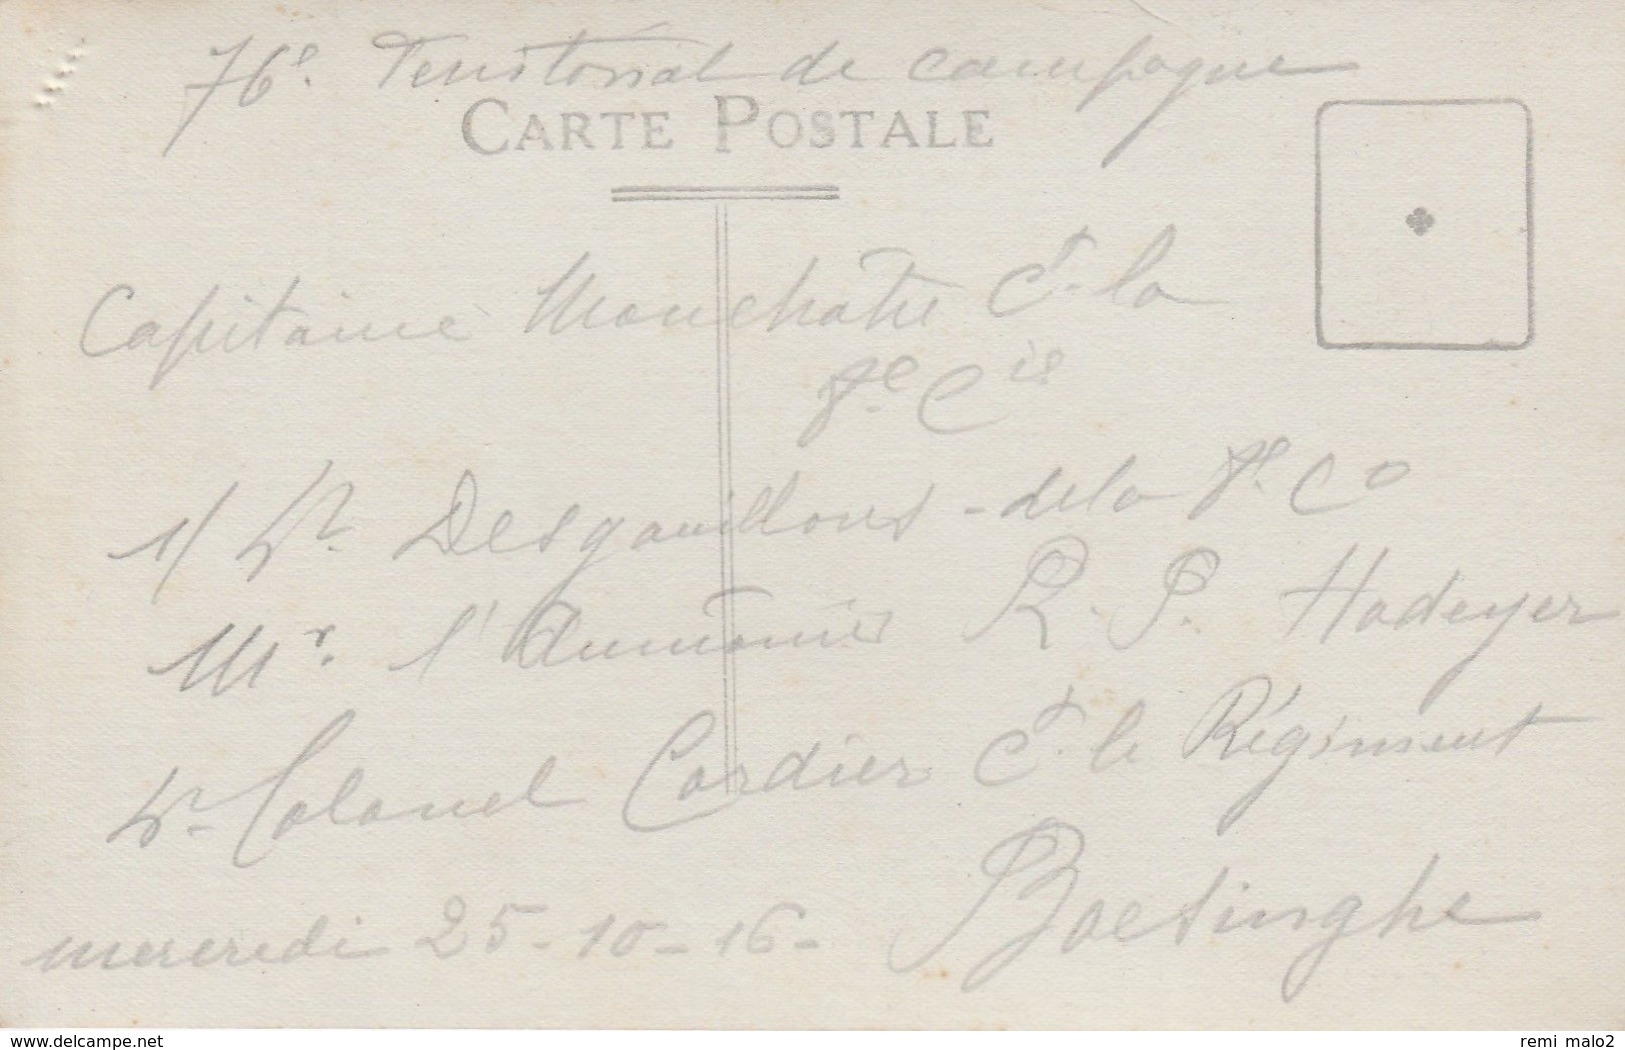 76e. Territorial de campagne
CARTE POSTALE
Capitaine Monchatre Ct. la
8e. Cie
s/ Lt. Desgouillons - de la 8e. Co
Mr. l'Aumônier R. P. Hodeyer
Lt. Colonel Cordier Ct. le Régiment
mercredi 25-10-16- Boesinghe
www.delcampe.net
remi malo2